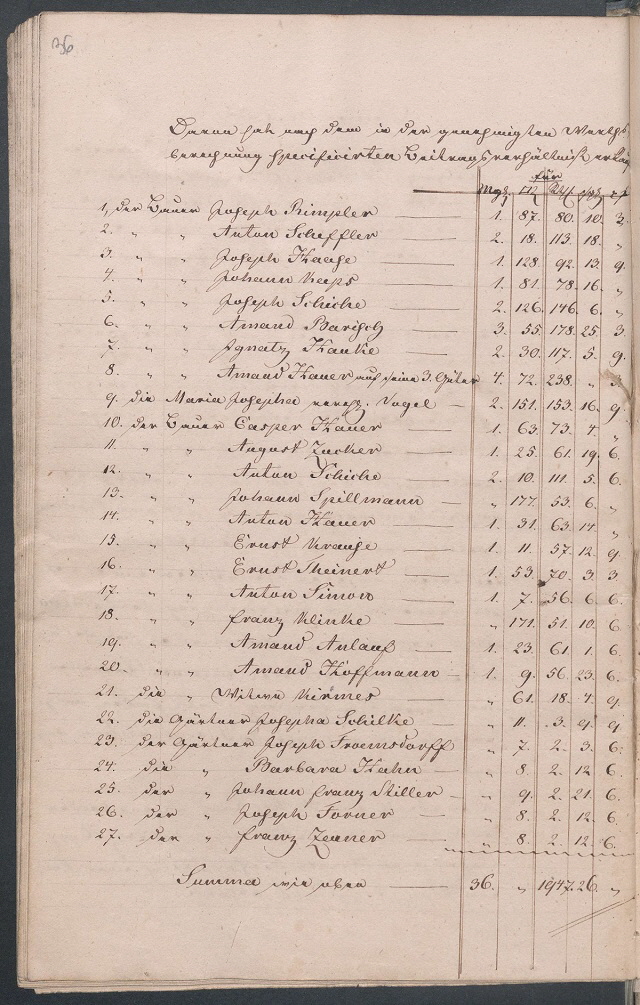 36
Davon hat nach dem in der genehmigten Werths
berechnung specificirten Beitragsverhältniß
für
Mg.
1, der Bauer Joseph Rimpler 1. 87. 80. 10. 3.
2. " " Anton Scheffler 2. 18. 113. 18. "
3. " " Joseph Haase 1. 128. 92. 13. 9.
4. " " Johann Keps 1. 81. 78. 16. "
5. " " Joseph Schiche 2. 126. 146. 6. "
6. " " Amand Barisch 3. 55. 178. 25. 3.
7. " " Ignatz Hanke 2. 30. 117. 5. 9.
8. " " Amand Hauer auf seine 3. Güter 4. 72. 238. " 3.
9. die Maria Josepha vereh. Vogel 2. 151. 153. 16. 9.
10. der Bauer Casper Hauer 1. 63. 73. 4. "
11. " " August Zucker 1. 25. 61. 19. 6.
12. " " Anton Schiche 2. 10. 111. 5. 6.
13. " " Johann Spillmann " 177. 53. 6. "
14. " " Anton Hauer 1. 31. 63. 14. "
15. " " Ernst Krause 1. 11. 57. 12. 9.
16. " " Ernst Theinert 1. 53. 70. 3. 3.
17. " " Anton Simon 1. 7. 56. 6. 6.
18. " " Franz Klinke " 171. 51. 10. 6.
19. " " Amand Anlauf 1. 23. 61. 1. 6.
20. " " Amand Hoffmann 1. 9. 56. 23. 6.
21. die " Witwe Kirmes " 61. 18. 4. 9.
22. die Gärtner Josepha Schilke " 11. 3. 9. 9.
23. der Gärtner Joseph Froemsdorff " 7. 2. 3. 6.
24. die " Barbara Hahn " 8. 2. 12. 6.
25. der " Johann Franz Stiller " 9. 2. 21. 6.
26. der " Joseph Forner " 8. 2. 12. 6.
27. der " Franz Zenner " 8. 2. 12. 6.
Summa wie oben 36. " 1947. 26. "